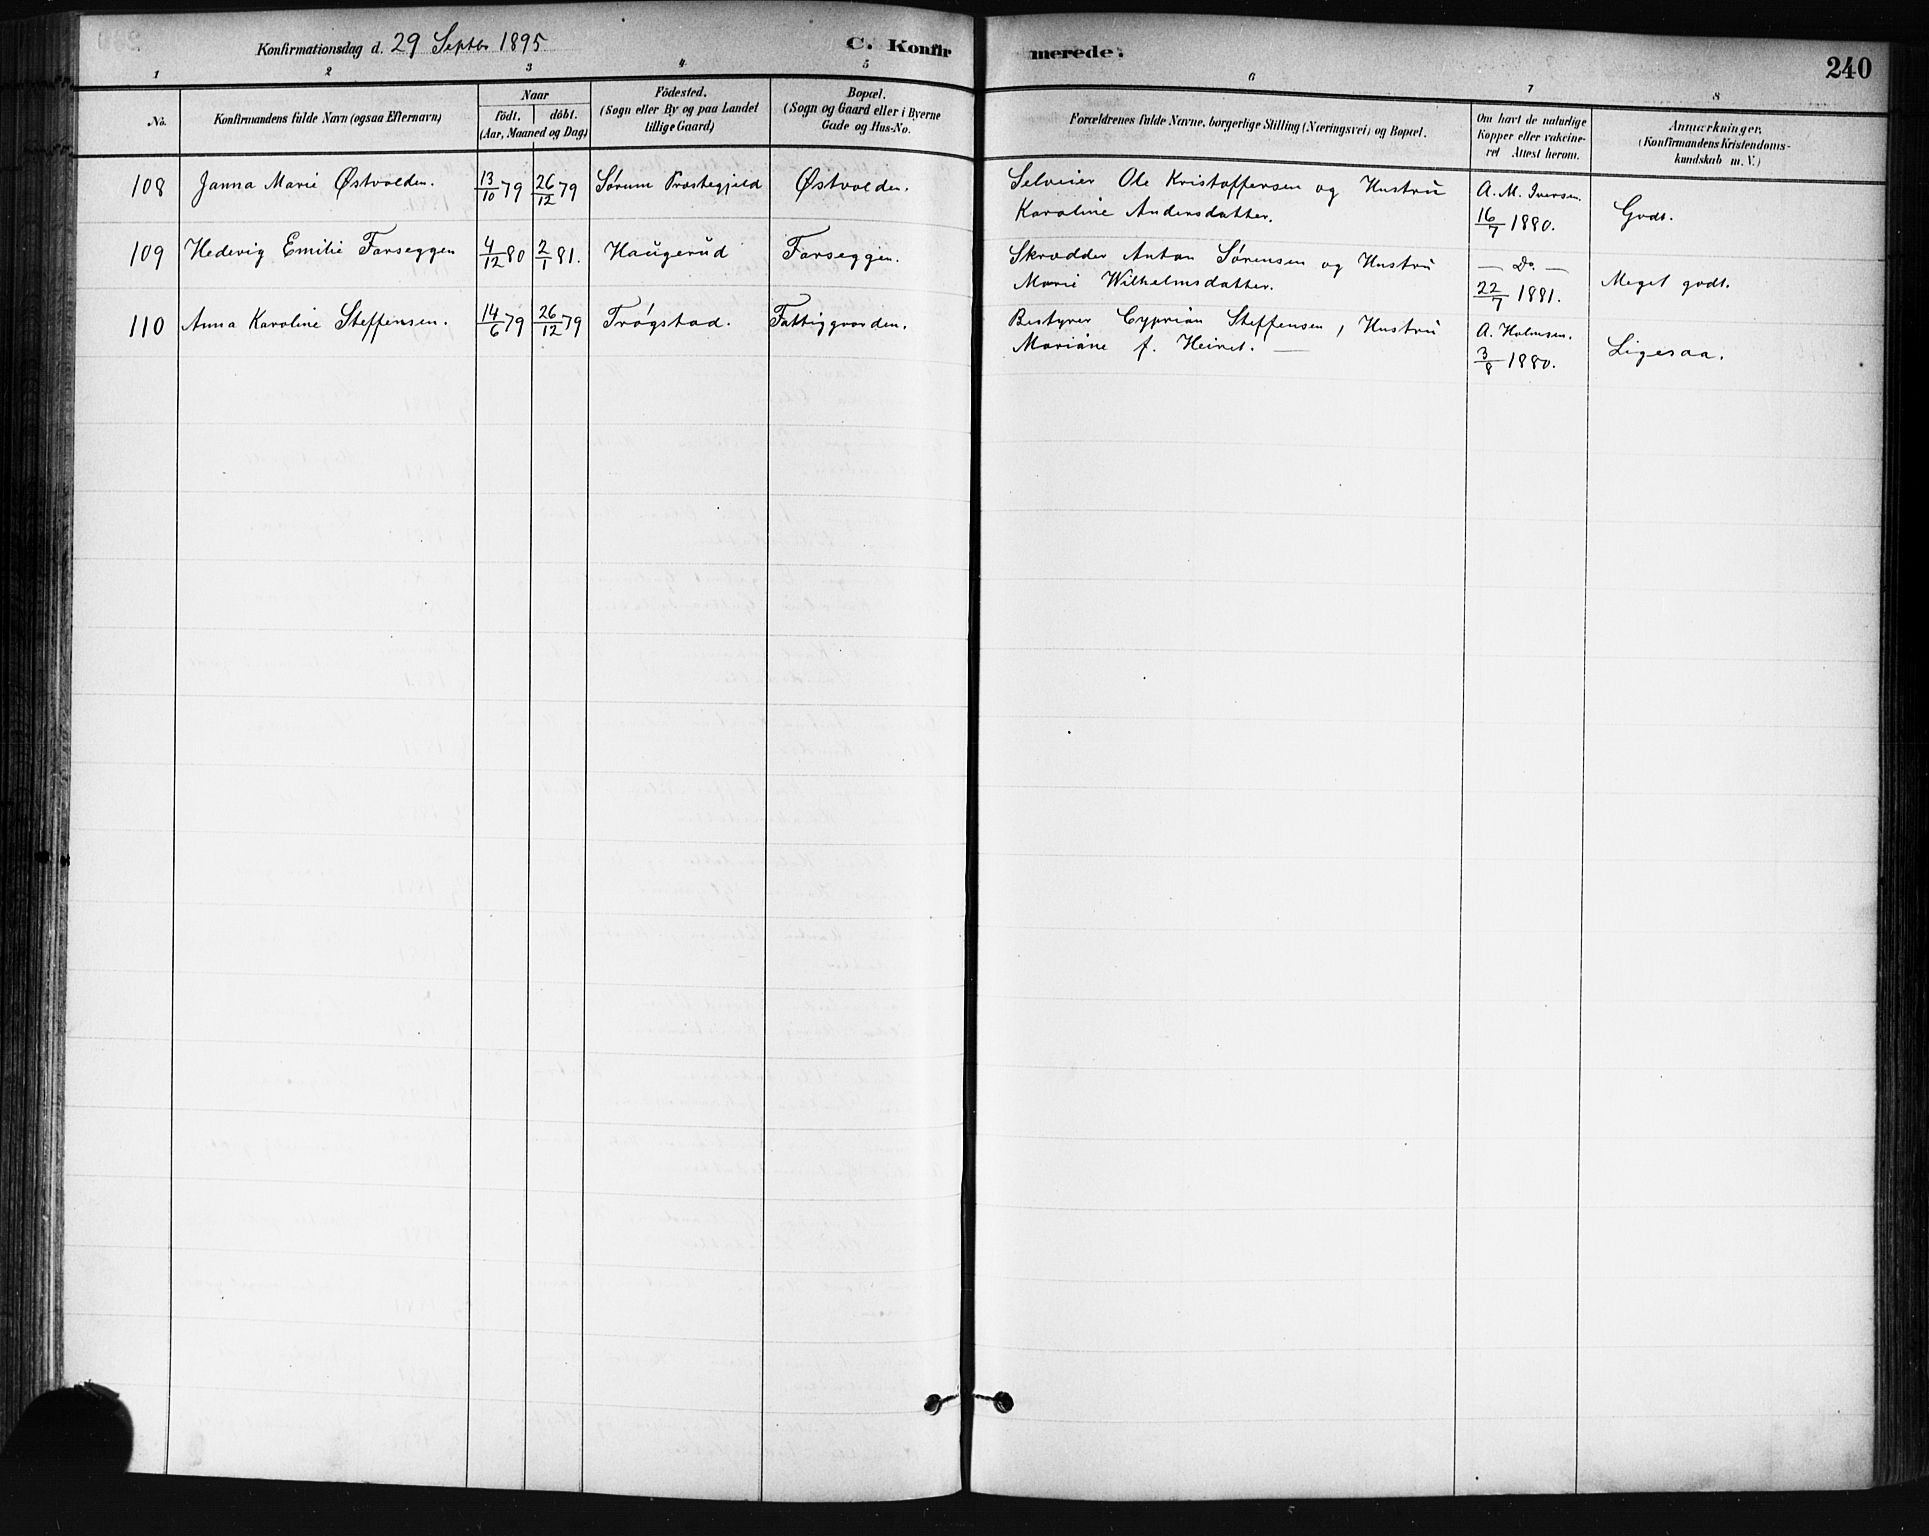 Konfirmationsdag d. 29 Septbr 1895
C. Konfirmerede.
240
1 2 3 4 5 6 7 8
No.
Konfirmandens fulde Navn (ogsaa Efternavn)
Naar
födt. döbt.
(Aar, Maaned og Dag)
Födested.
(Sogn eller By og paa Landet
tillige Gaard)
Bopæl.
(Sogn og Gaard eller i Byerne
Gade og Hus-No.
Forældrenes fulde Navne, borgerlige Stilling (Næringsvei) og Bopæl.
Om havt de naturlige
Kopper eller vakcine-
ret Attest herom.
Anmærkninger.
(Konfirmandens Kristendoms-
kundskab m. V.)
108 Janna Marie Østvolden. 13/10 79 26/12 79 Sørum Prostegjeld Østvolden. Selveier Ole Kristoffersen og Hustru A. M. Iversen.
Karoline Andersdatter. 16/7 1880. Godt.
109 Hedevig Emilie Farseggen 4/12 80 2/1 81. Haugerud Farseggen. Skrædder Anton Sørensen og Hustru — Do. —
Marie Wilhelmsdatter. 22/7 1881. Meget godt.
110 Anna Karoline Steffensen. 14/6 79 26/12 79 Trøgstad. Fattiggaarden. Bestyrer Cyprian Steffensen, Hustru A. Holmsen.
Mariane f. Heiret. — 3/8 1880. Ligesaa.